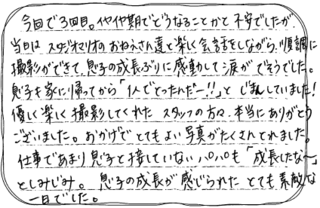 今回で3回目。イヤイヤ期でどうなることかと不安でしたが、
当日はスタジオマリオのおねえさん達と楽しく会話をしながら、順調に
撮影ができて、息子の成長ぶりに感動して涙がでそうでした。
息子も家に帰ってから「1人でとったんだー!!」とじまんしていました!
優しく楽しく撮影してくれたスタッフの方々、本当にありがとう
ございました。おかげでとてもよい写真がたくさんとれました。
仕事であまり息子と接していないパパも「成長したなー」
としみじみ。息子の成長が感じられたとても素敵な
一日でした。